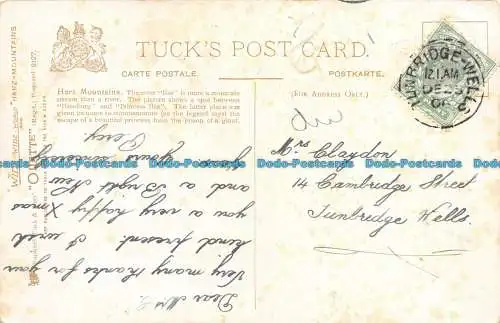 TUCK'S POST CARD.
CARTE POSTALE. POSTKARTE.
(FOR ADDRESS ONLY.)
Harz Mountains. The river "Ilse" is more a mountain
stream than a river. The picture shows a spot between
"Ilsenburg" and "Princess Ilse". The latter place was
given its name in remembrance (as the legend says) the
escape of a beautiful princess from the prison of a giant.
TUNBRIDGE-WELLS
12 1.AM
DE 25
Mrs Claydon
14 Cambridge Street
Tunbridge Wells.
Dear Mrs C.
Very many thanks for your
kind present. I wish
you a very happy Xmas
and a Bright New
Year
Yours sincerely
Percy.
"OILETTE"
HARZ-MOUNTAINS
Bodo-Postcards.com